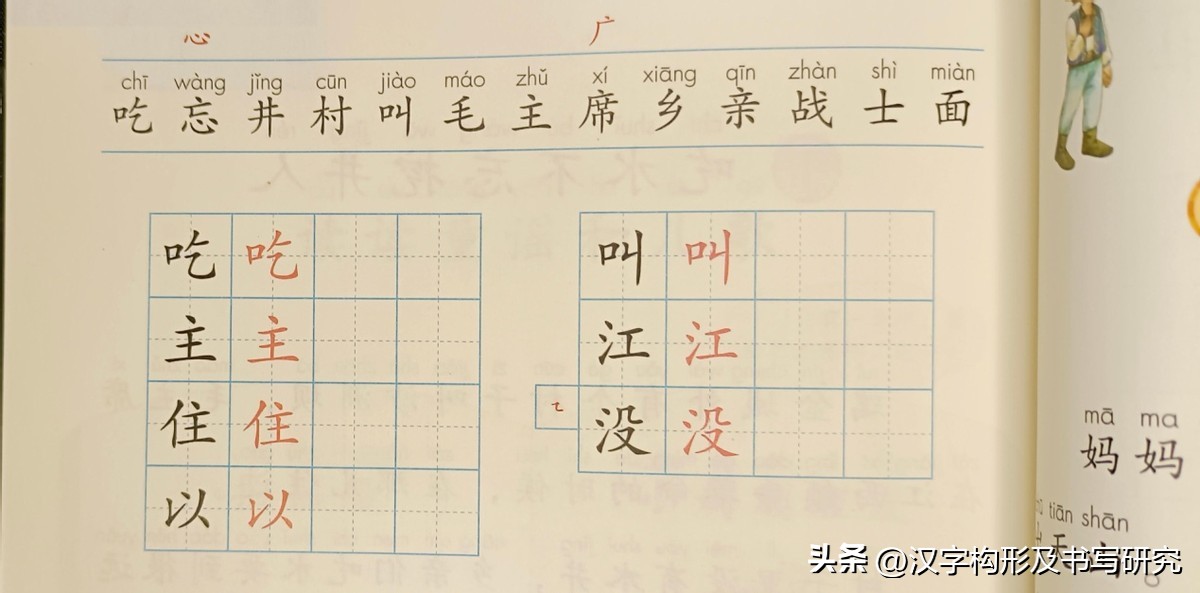 心 广
chī wàng jǐng cūn jiào máo zhǔ xí xiāng qīn zhàn shì miàn
吃 忘 井 村 叫 毛 主 席 乡 亲 战 士 面
吃 吃
主 主
住 住
以 以
叫 叫
江 江
㇍ 没 没
mā ma
妈 妈
tiān shān
天
头条 @汉字构形及书写研究